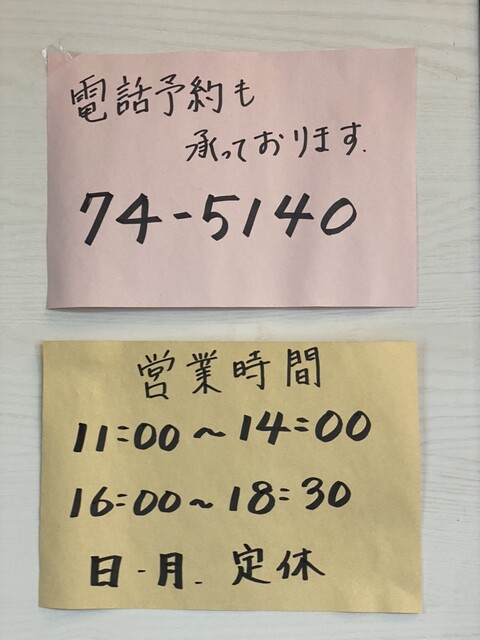 電話予約も
承っております.
74-5140
営業時間
11:00～14:00
16:00～18:30
日-月- 定休